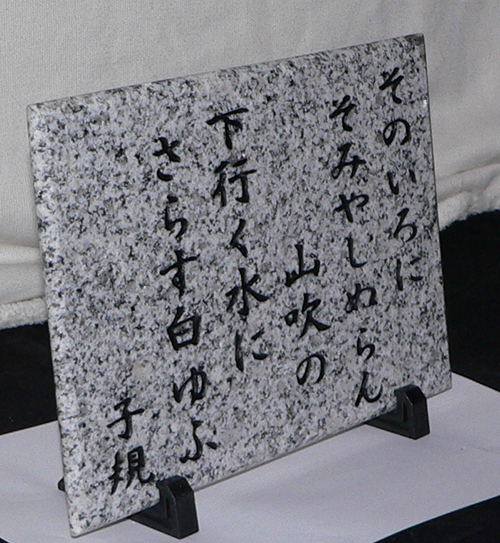 そのいろに
そみやしぬらん
山吹の
下行く水に
さらす白ゆふ
子規